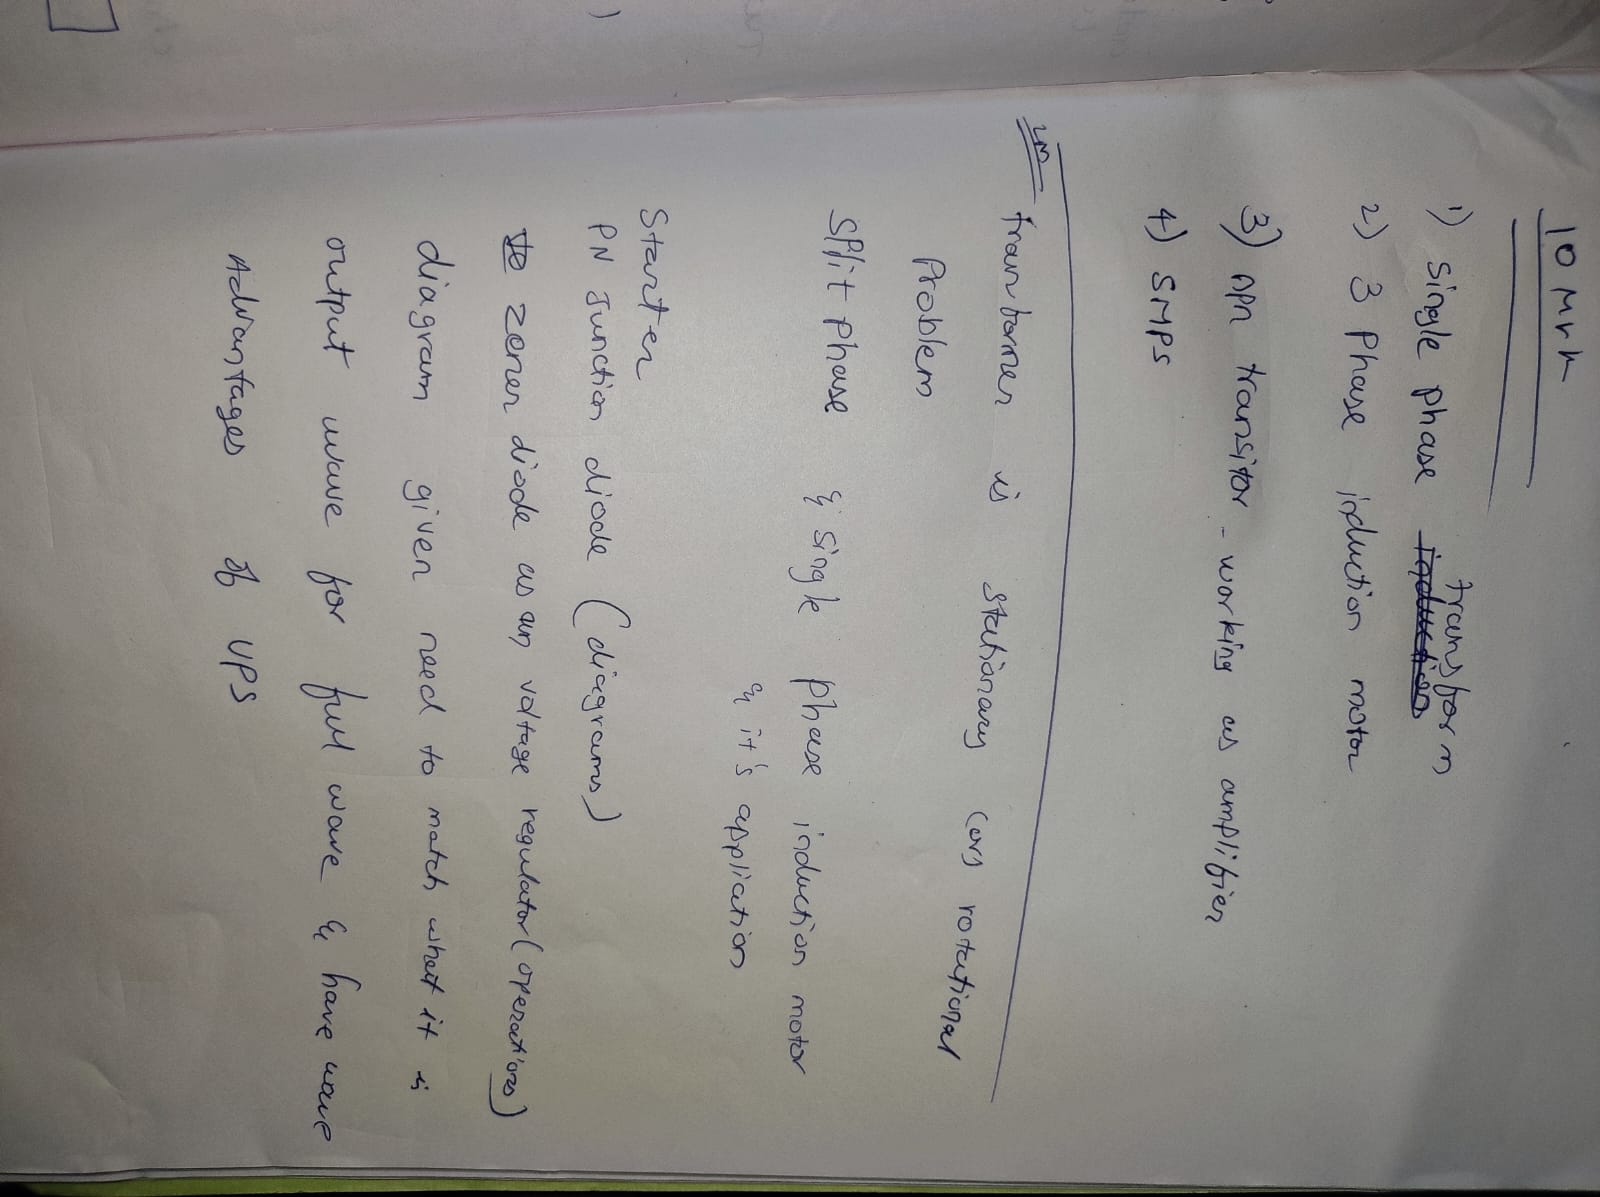 10 Mrk
1) single phase transform
2) 3 Phase induction motor
3) npn transitor - working as amplifier
4) SMPS
2m
transformer is stationary (or) rotational
Problem
Split phase & single phase induction motor
& it's appliation
Starter
PN Junction diode (diagrams)
zener diode as an voltage regulator (operations)
diagram given need to match what it is
output wave for full wave & have wave
Advantages of UPS